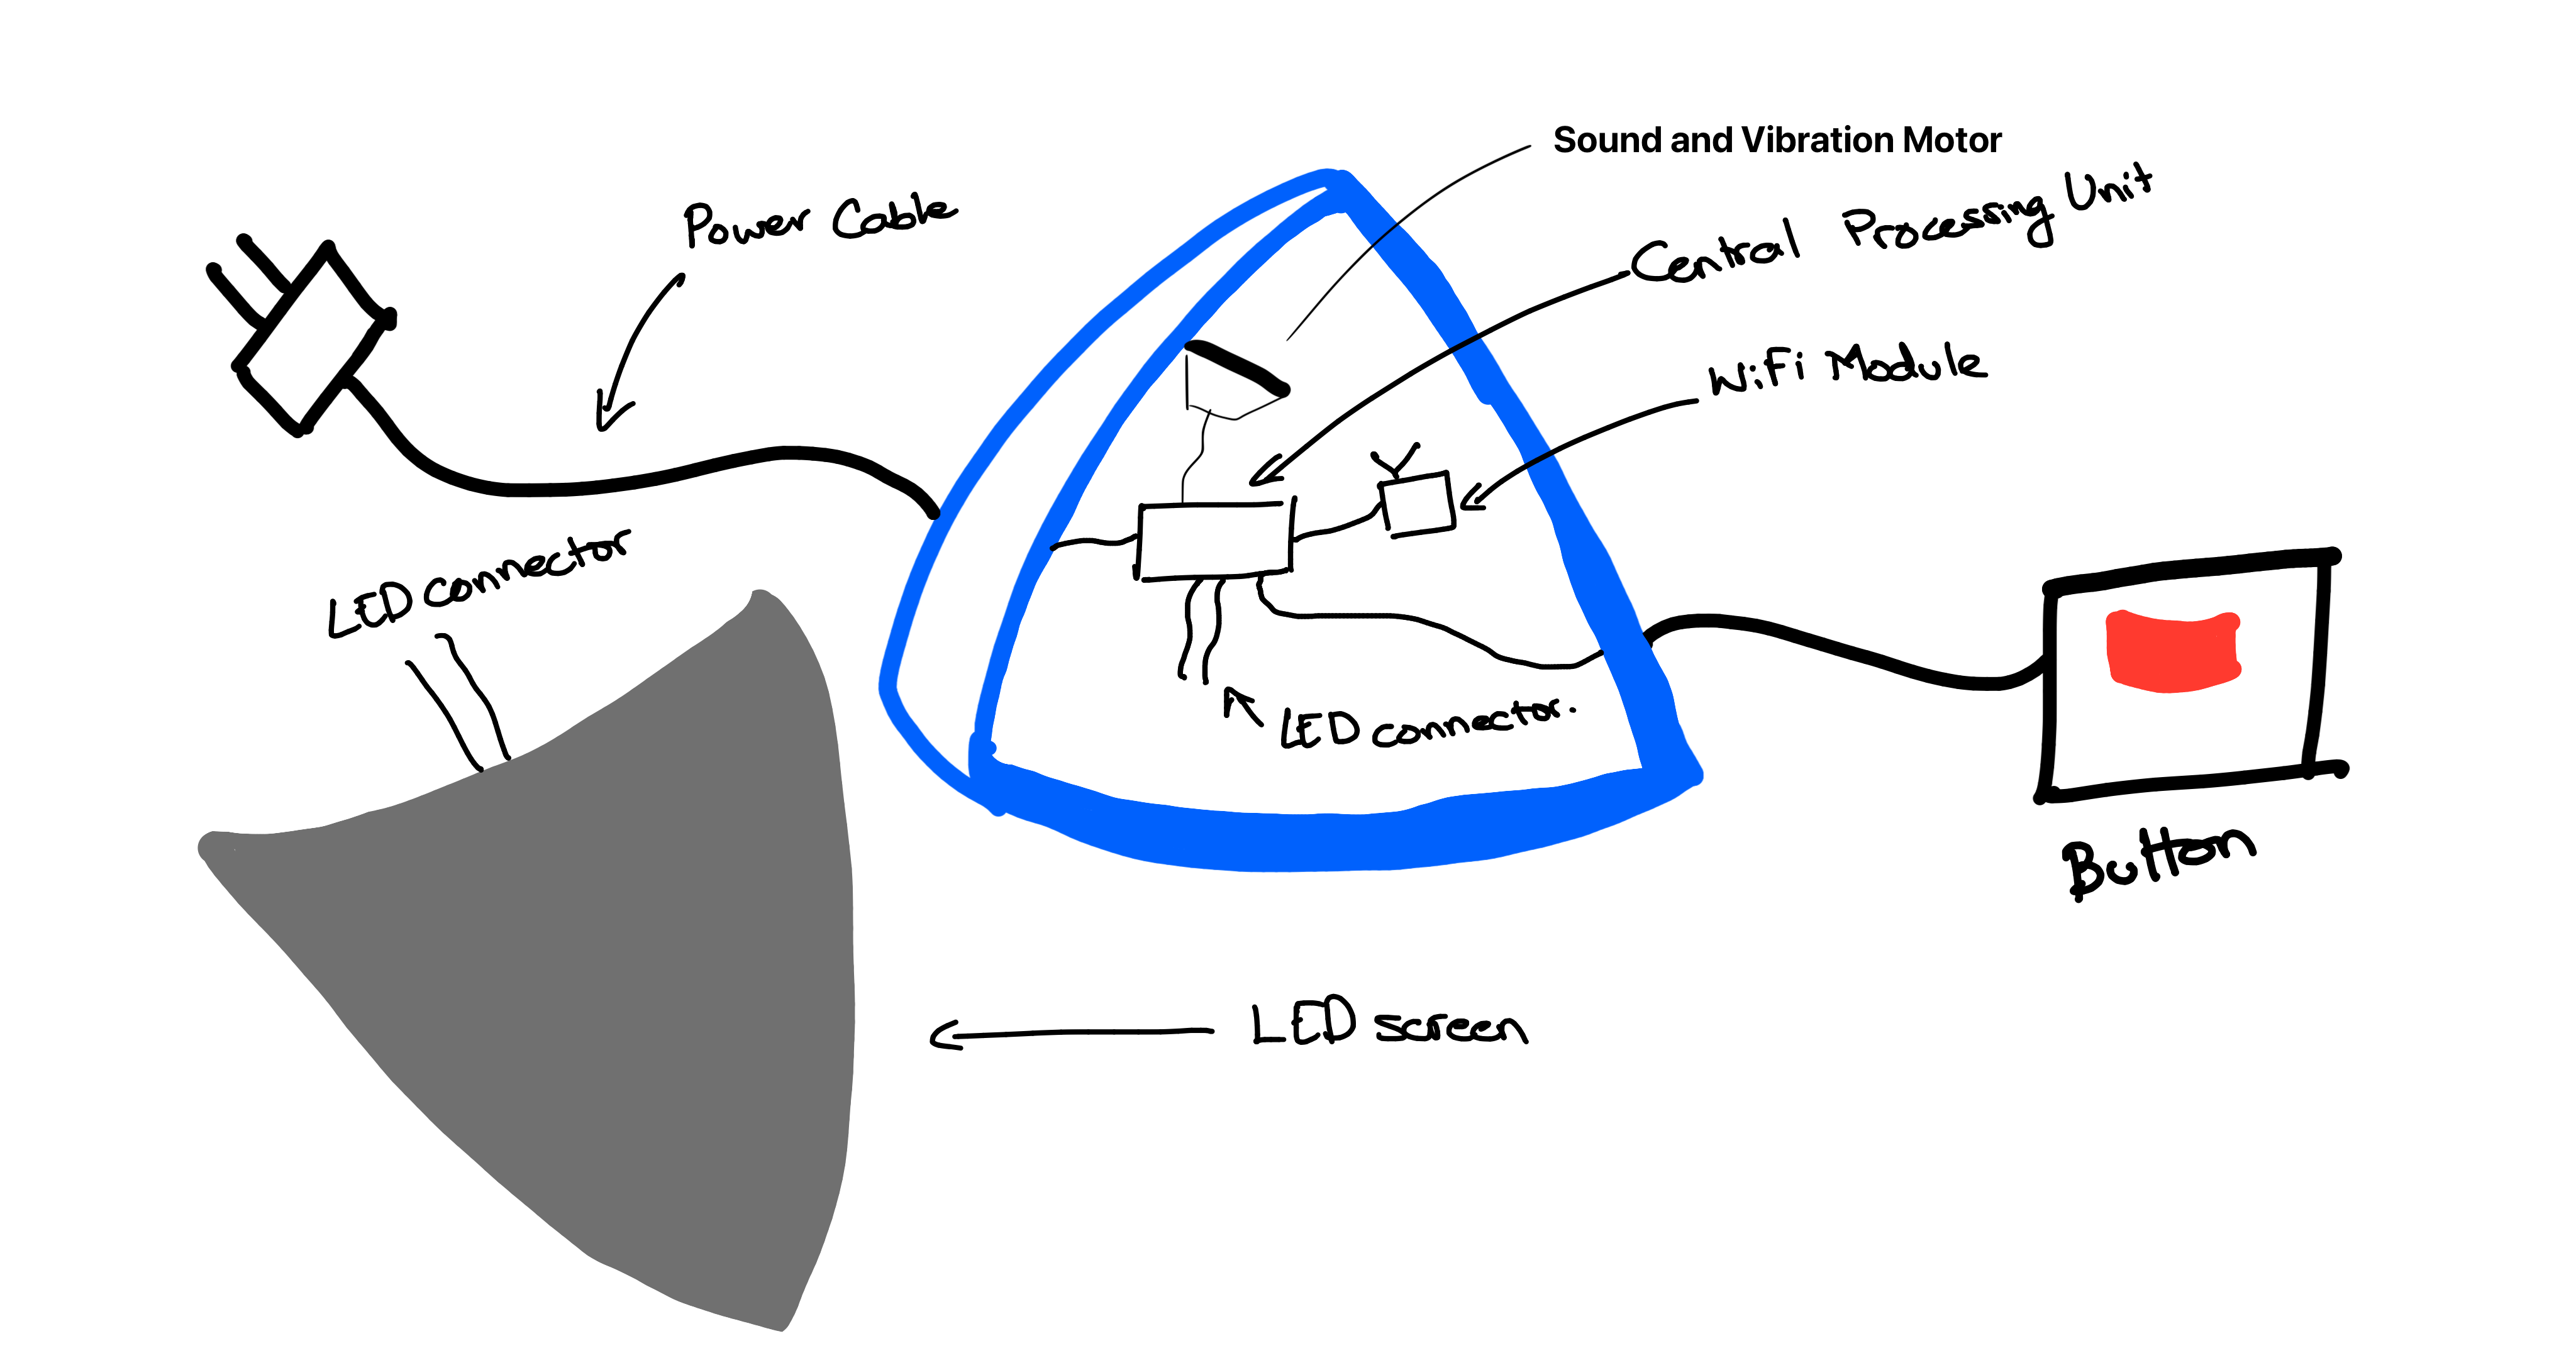 Sound and Vibration Motor
Power Cable
Central Processing Unit
WiFi Module
LED connector
LED connector.
Button
LED screen